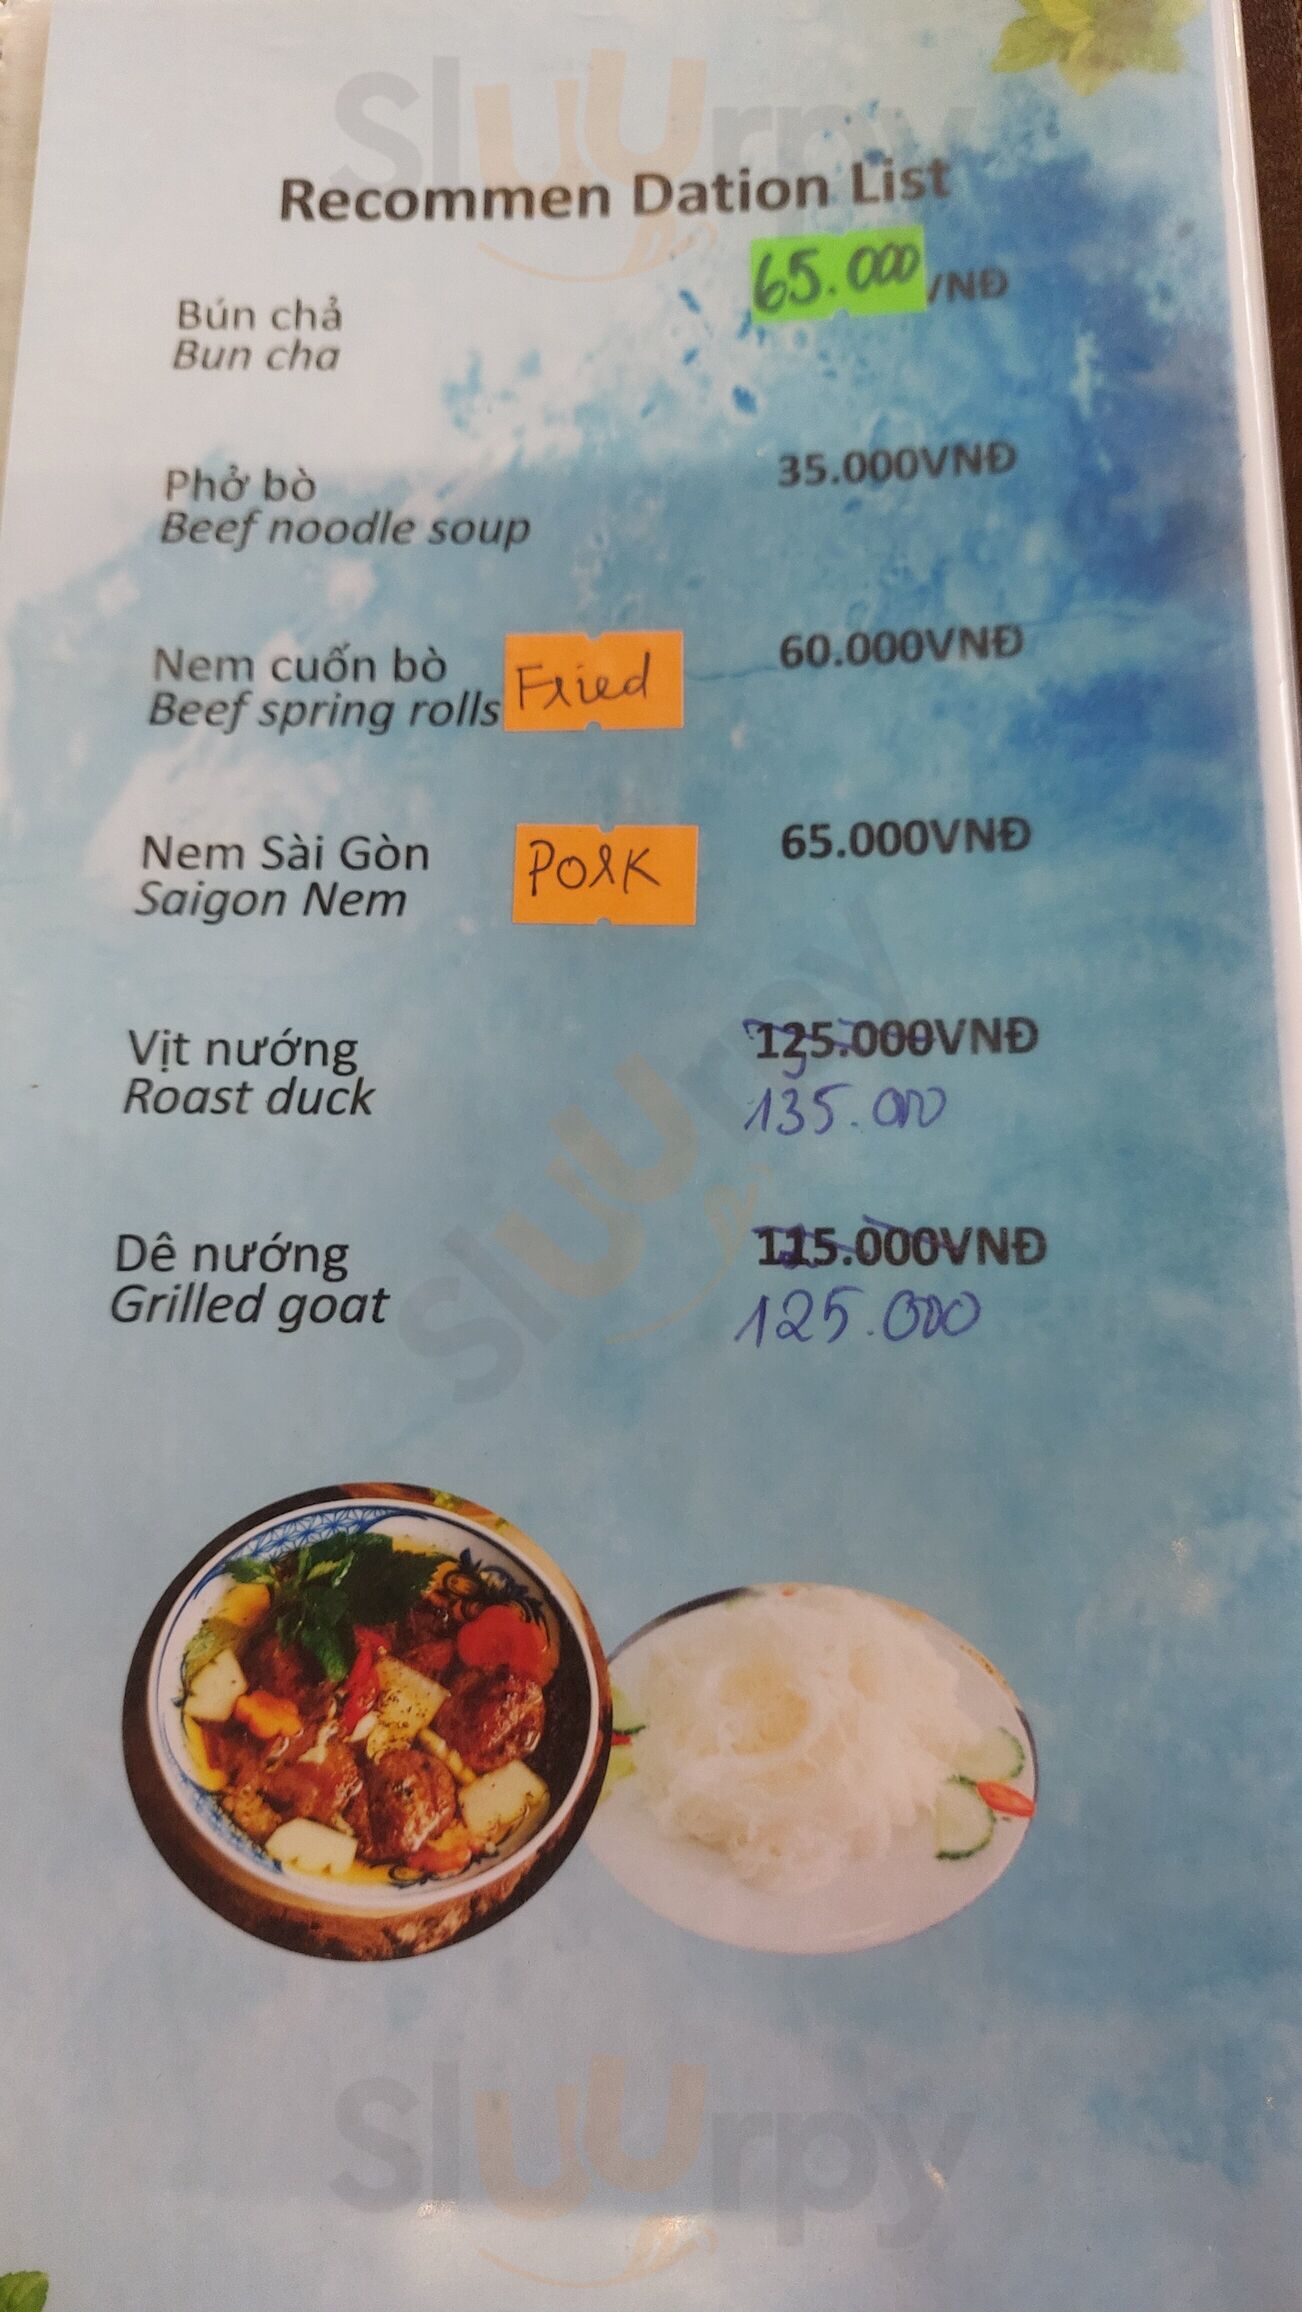 Sluurpy
Recommen Dation List
Bún chả 65.000 VNĐ
Bun cha
Phở bò 35.000VNĐ
Beef noodle soup
Nem cuốn bò 60.000VNĐ
Beef spring rolls Fried
Nem Sài Gòn Pork 65.000VNĐ
Saigon Nem
Vịt nướng 125.000VNĐ
Roast duck 135.000
Sluurpy
Dê nướng 115.000VNĐ
Grilled goat 125.000
Sluurpy